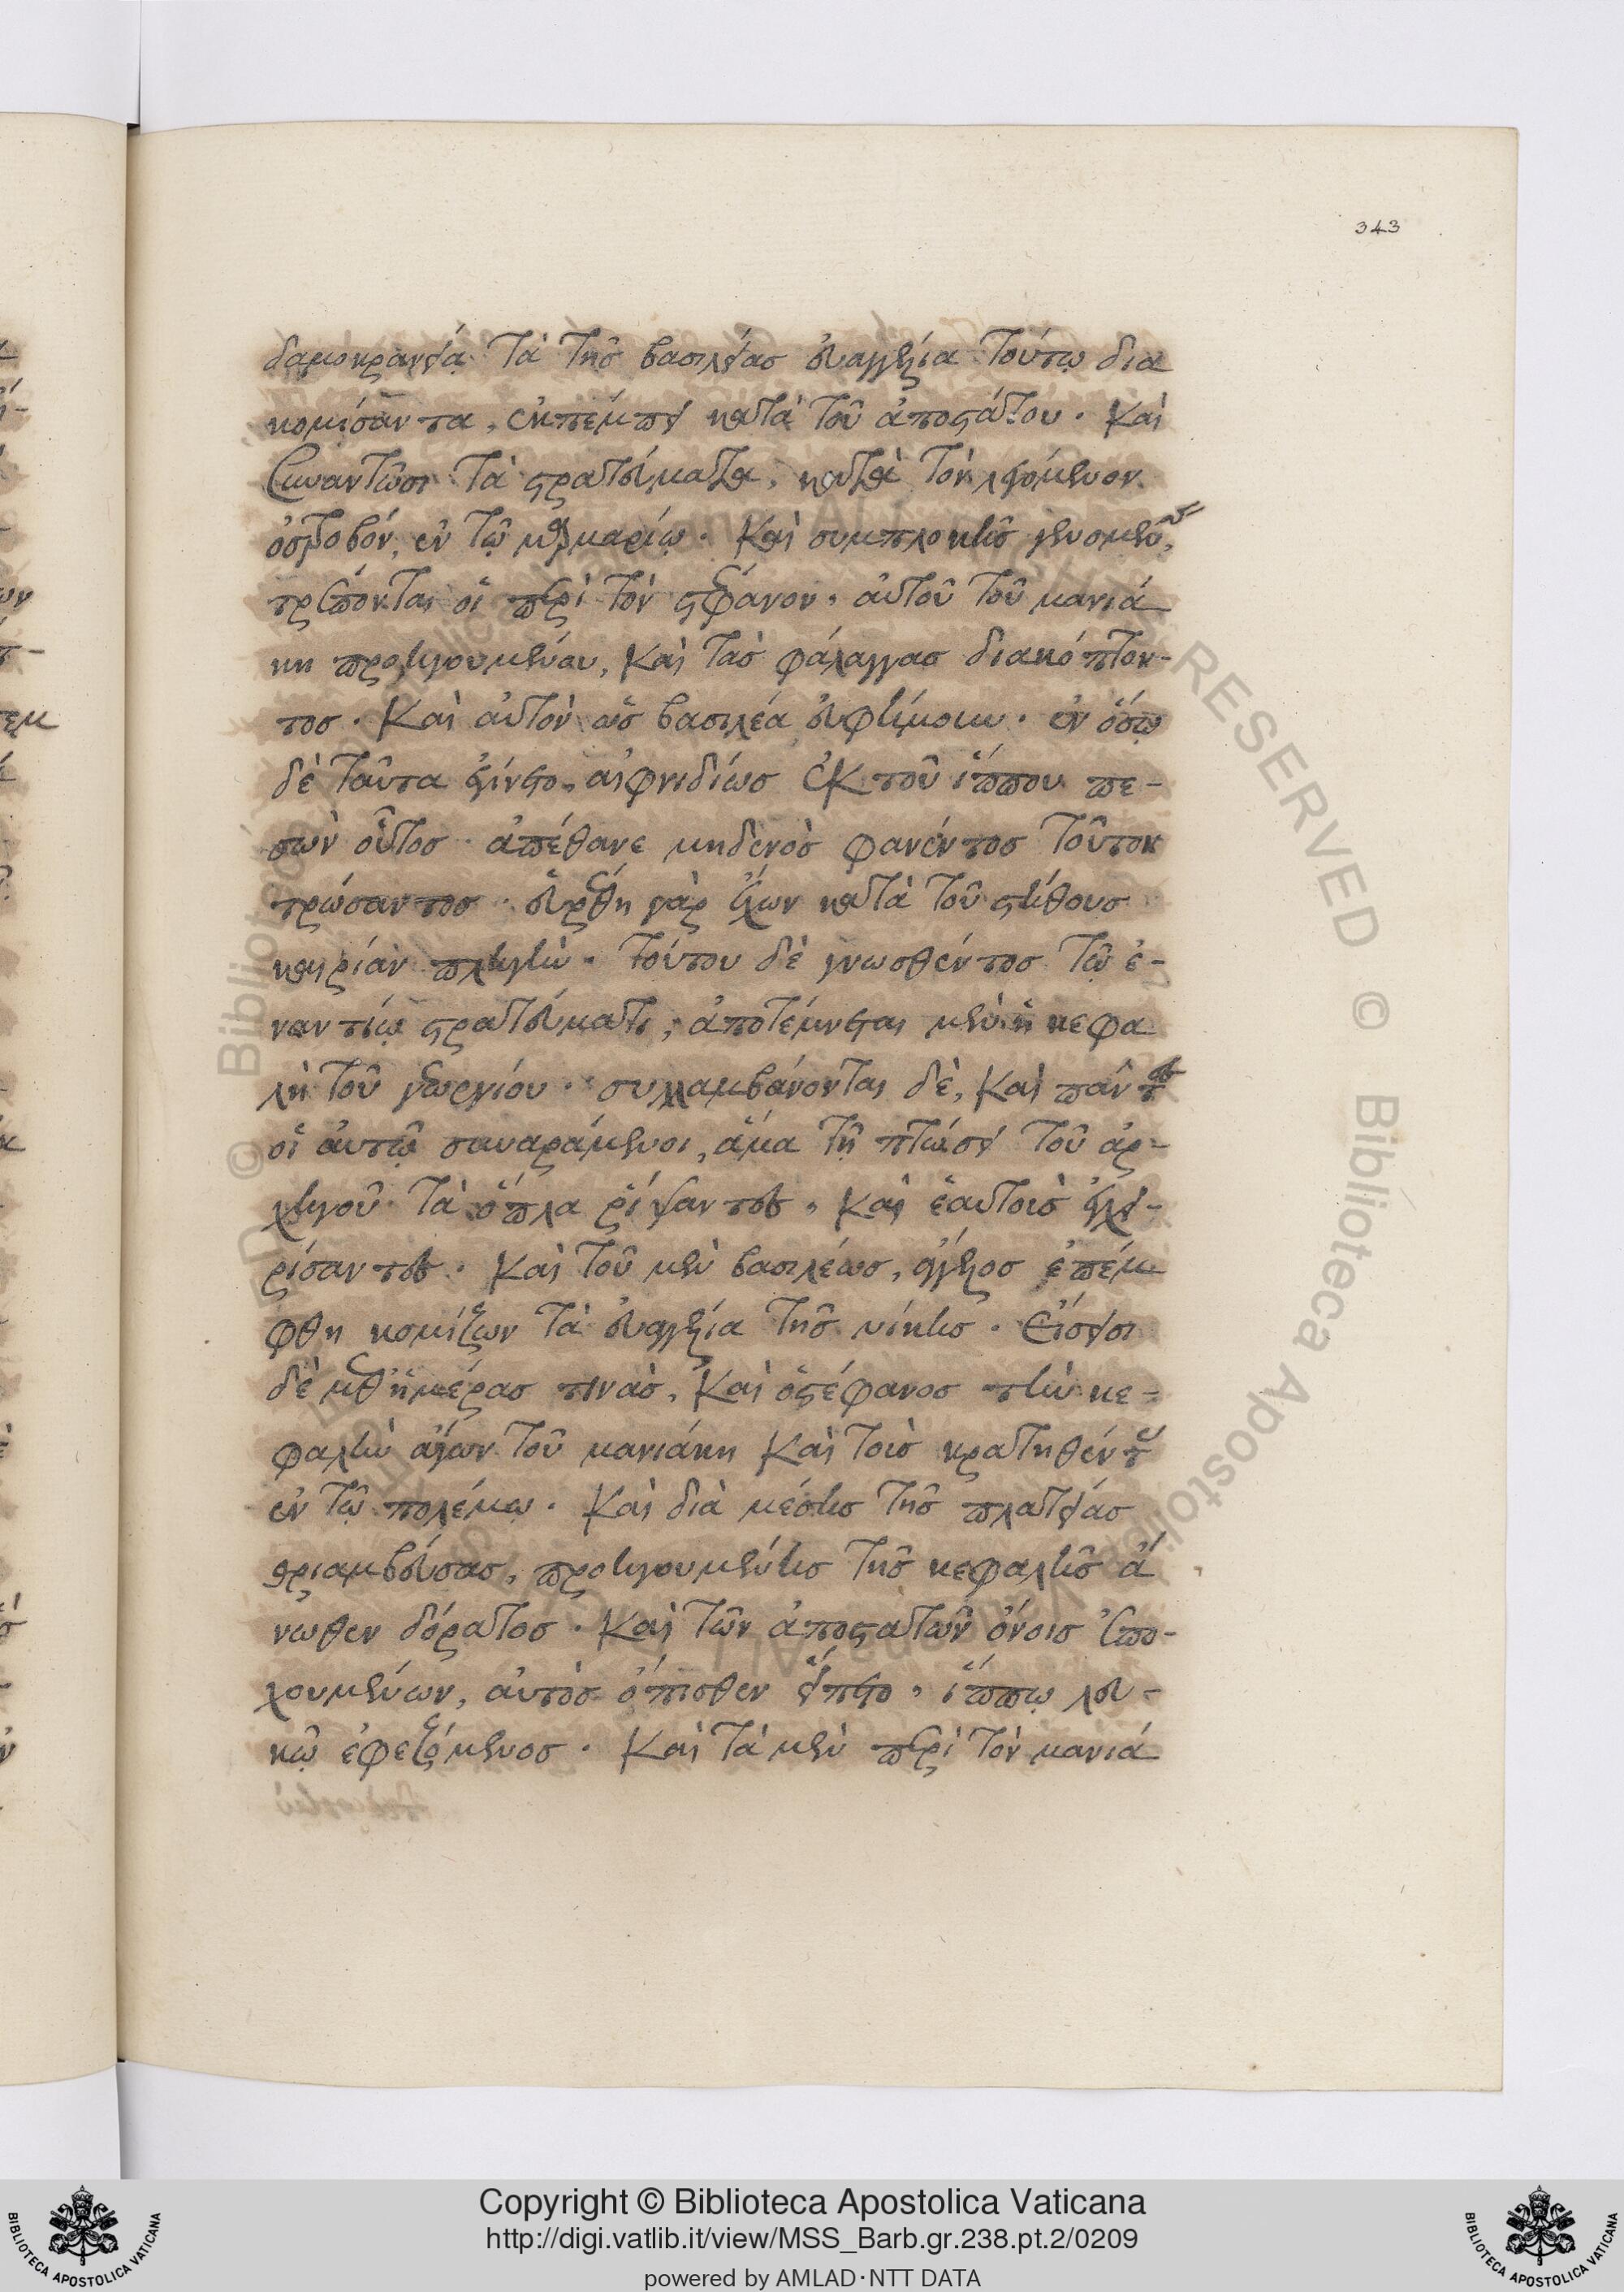 343
δαμοκρανείᾳ τὰ τῆς βασιλείας εὐαγγέλια τούτῳ δια
κομίσαντα, ἐκπέμπει κατὰ τοῦ ἀποστάτου. καὶ
συναντῶσι τὰ στρατεύματα, κατὰ τὸν λεγόμενον
ὀστροβόν, ἐν τῷ μαρμαρίῳ. καὶ συμπλοκῆς γενομένης,
τρέπονται οἱ περὶ τὸν στέφανον, αὐτοῦ τοῦ μανιά
κη προηγουμένου, καὶ τὰς φάλαγγας διακόπτον-
τος. καὶ αὐτὸν ὡς βασιλέα εὐφήμουν. ἐν ὅσῳ
δὲ ταῦτα ἐγίνετο, αἰφνιδίως ἐκ τοῦ ἵππου πε-
σὼν οὗτος ἀπέθανε μηδενὸς φανέντος τοῦτον
τρώσαντος. εὑρέθη γὰρ ἔχων κατὰ τοῦ στήθους
καιρίαν πληγὴν. τούτου δὲ γνωσθέντος τῷ ἐ-
ναντίῳ στρατεύματι, ἀποτέμνεται μὲν ἡ κεφα
λὴ τοῦ γεωργίου. συλλαμβάνονται δὲ, καὶ πάντες
οἱ αὐτῷ συναράμενοι, ἅμα τῇ πτώσει τοῦ ἀρ-
χηγοῦ τὰ ὅπλα ῥίψαντες, καὶ ἑαυτοὺς ἐγχει-
ρίσαντες. καὶ τοῦ μὲν βασιλέως, ἄγγελος ἐπέμ
φθη κομίζων τὰ εὐαγγέλια τῆς νίκης. εἴσεισι
δὲ μεθ' ἡμέρας τινὰς, καὶ ὁ στέφανος τὴν κε-
φαλὴν ἄγων τοῦ μανιάκη καὶ τοὺς κρατηθέντας
ἐν τῷ πολέμῳ. καὶ διὰ μέσης τῆς πλατείας
θριαμβεύσας, προηγουμένης τῆς κεφαλῆς ἄ
νωθεν δόρατος. καὶ τῶν ἀποστατῶν ὄνοις ἐπο-
χουμένων, αὐτὸς ὄπισθεν εἵπετο, ἵππῳ λευ-
κῷ ἐφεζόμενος. καὶ τὰ μὲν περὶ τὸν μανιά
Copyright © Biblioteca Apostolica Vaticana
http://digi.vatlib.it/view/MSS_Barb.gr.238.pt.2/0209
powered by AMLAD·NTT DATA